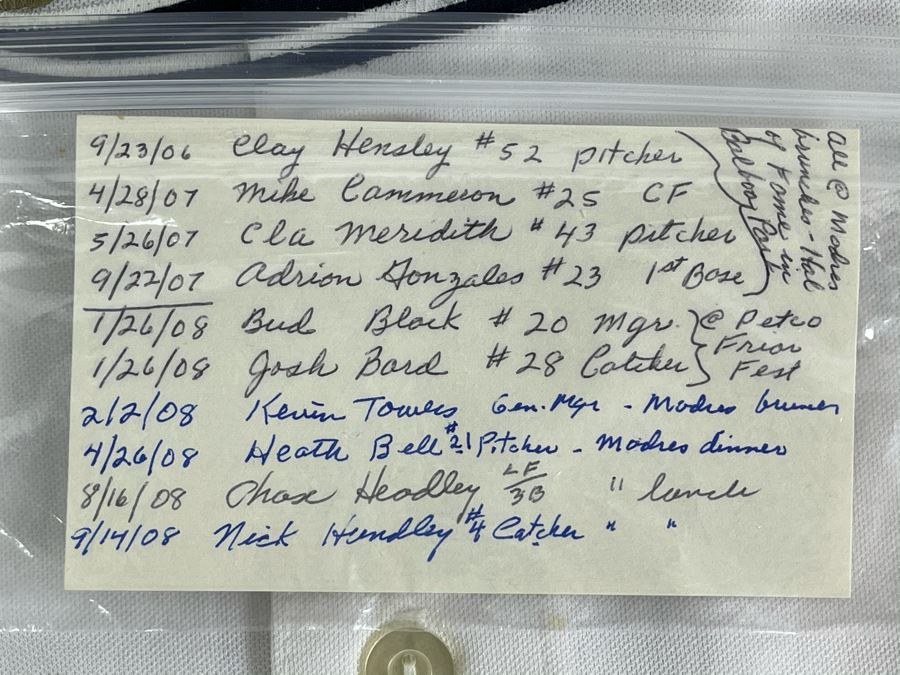 9/23/06 Clay Hensley #52 pitcher
4/28/07 Mike Cammeron #25 CF
5/26/07 Cla Meridith #43 pitcher
9/22/07 Adrion Gonzales #23 1st Base
All @ Madres
lunches - Hal
of Fame in
Balboa Park
1/26/08 Bud Black #20 Mgr.
1/26/08 Josh Bard #28 Catcher
@ Petco
Friar
Fest
2/2/08 Kevin Towers Gen. Mgr - Madres
4/26/08 Heath Bell #21 Pitcher - Madres dinner
8/16/08 Chase Headley LF/3B " lunch
9/14/08 Nick Hundley #4 Catcher " "